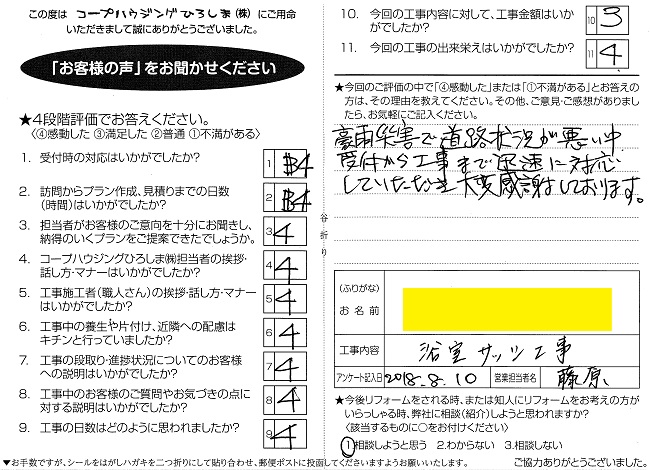 この度は コープハウジングひろしま(株) にご用命
いただきまして誠にありがとうございました。
「お客様の声」をお聞かせください
★4段階評価でお答えください。
〈④感動した ③満足した ②普通 ①不満がある〉
1. 受付時の対応はいかがでしたか?
1 4
2. 訪問からプラン作成、見積りまでの日数
(時間)はいかがでしたか?
2 4
3. 担当者がお客様のご意向を十分にお聞きし、
納得のいくプランをご提案できたでしょうか。
3 4
4. コープハウジングひろしま㈱担当者の挨拶・
話し方・マナーはいかがでしたか?
4 4
5. 工事施工者(職人さん)の挨拶・話し方・マナー
はいかがでしたか?
5 4
6. 工事中の養生や片付け、近隣への配慮は
キチンと行っていましたか?
6 4
7. 工事の段取り・進捗状況についてのお客様
への説明はいかがでしたか?
7 4
8. 工事中のお客様のご質問やお気づきの点に
対する説明はいかがでしたか?
8 4
9. 工事の日数はどのように思われましたか?
9 4
▼お手数ですが、シールをはがしハガキを二つ折りにして貼り合わせ、郵便ポストに投函してくださいますようお願いいたします。
谷折り
10. 今回の工事内容に対して、工事金額はいか
がでしたか?
10 3
11. 今回の工事の出来栄えはいかがでしたか?
11 4
★今回のご評価の中で「④感動した」または「①不満がある」とお答え
の方は、その理由を教えてください。その他、ご意見・ご感想がありまし
たら、お気軽にご記入ください。
豪雨災害で道路状況が悪い中
受付から工事まで迅速に対応
していただき大変感謝しております。
(ふりがな)
お名前
工事内容 浴室サッシ工事
アンケート記入日 2018.8.10 営業担当者名 藤原
★今後リフォームをされる時、または知人にリフォームをお考えの方が
いらっしゃる時、弊社に相談(紹介)しようと思われますか?
〈該当するものに○をお付けください〉
1.相談しようと思う 2.わからない 3.相談しない
ご協力ありがとうございました。